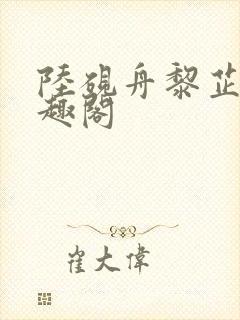 陸硯舟黎芷
趣閣
崔大偉